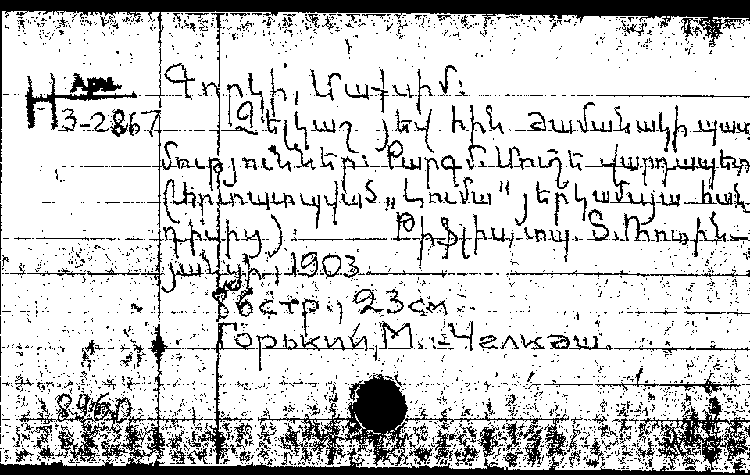 Арм.
Н
3-2867
Գորկի, Մաքսիմ:
Չելկաշ յեվ հին ժամանակի պատ
մություններ: Թարգմ. Մուշե վարդապետ
(Արտատպված „Լումա" յերկամսյա հան
դիսից) Թիֆլիս, տպ. Տ. Ռոտին-
յանցի, 1903
86 стр., 23 см
Горький, М. - Челкаш.
8960